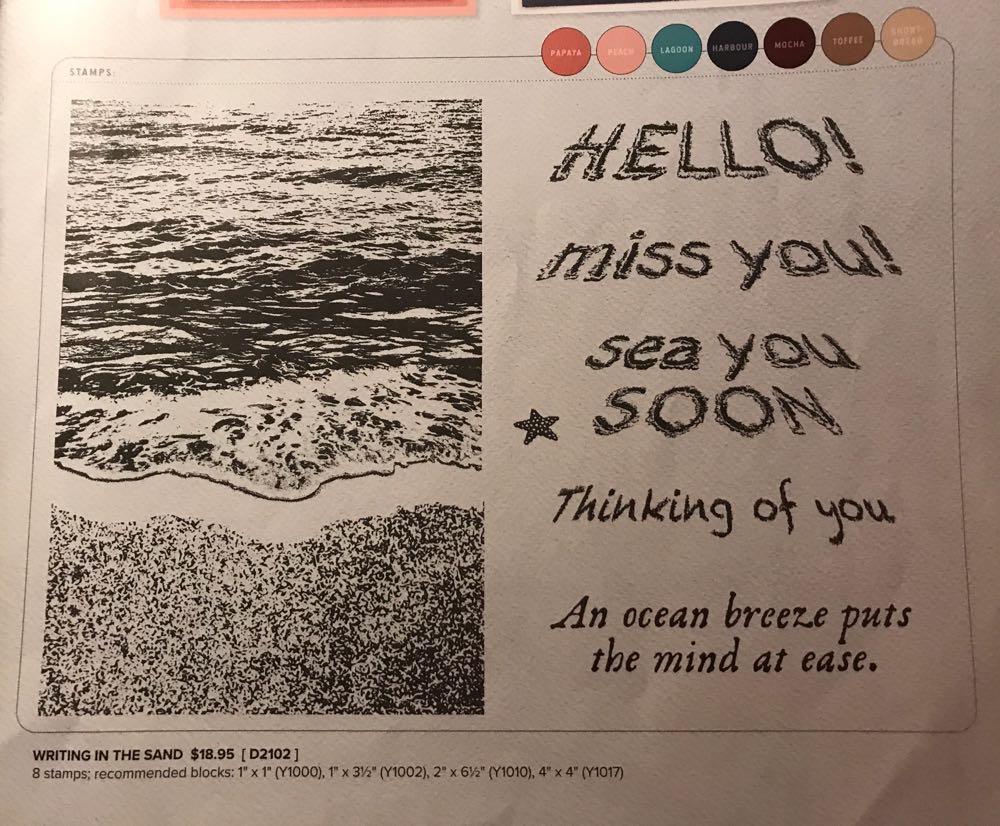 PAPAYA
PEACH
LAGOON
HARBOUR
MOCHA
TOFFEE
SHORT-
BREAD
STAMPS:
HELLO!
miss you!
sea you
SOON
Thinking of you
An ocean breeze puts
the mind at ease.
WRITING IN THE SAND $18.95 [ D2102 ]
8 stamps; recommended blocks: 1" x 1" (Y1000), 1" x 3½" (Y1002), 2" x 6½" (Y1010), 4" x 4" (Y1017)